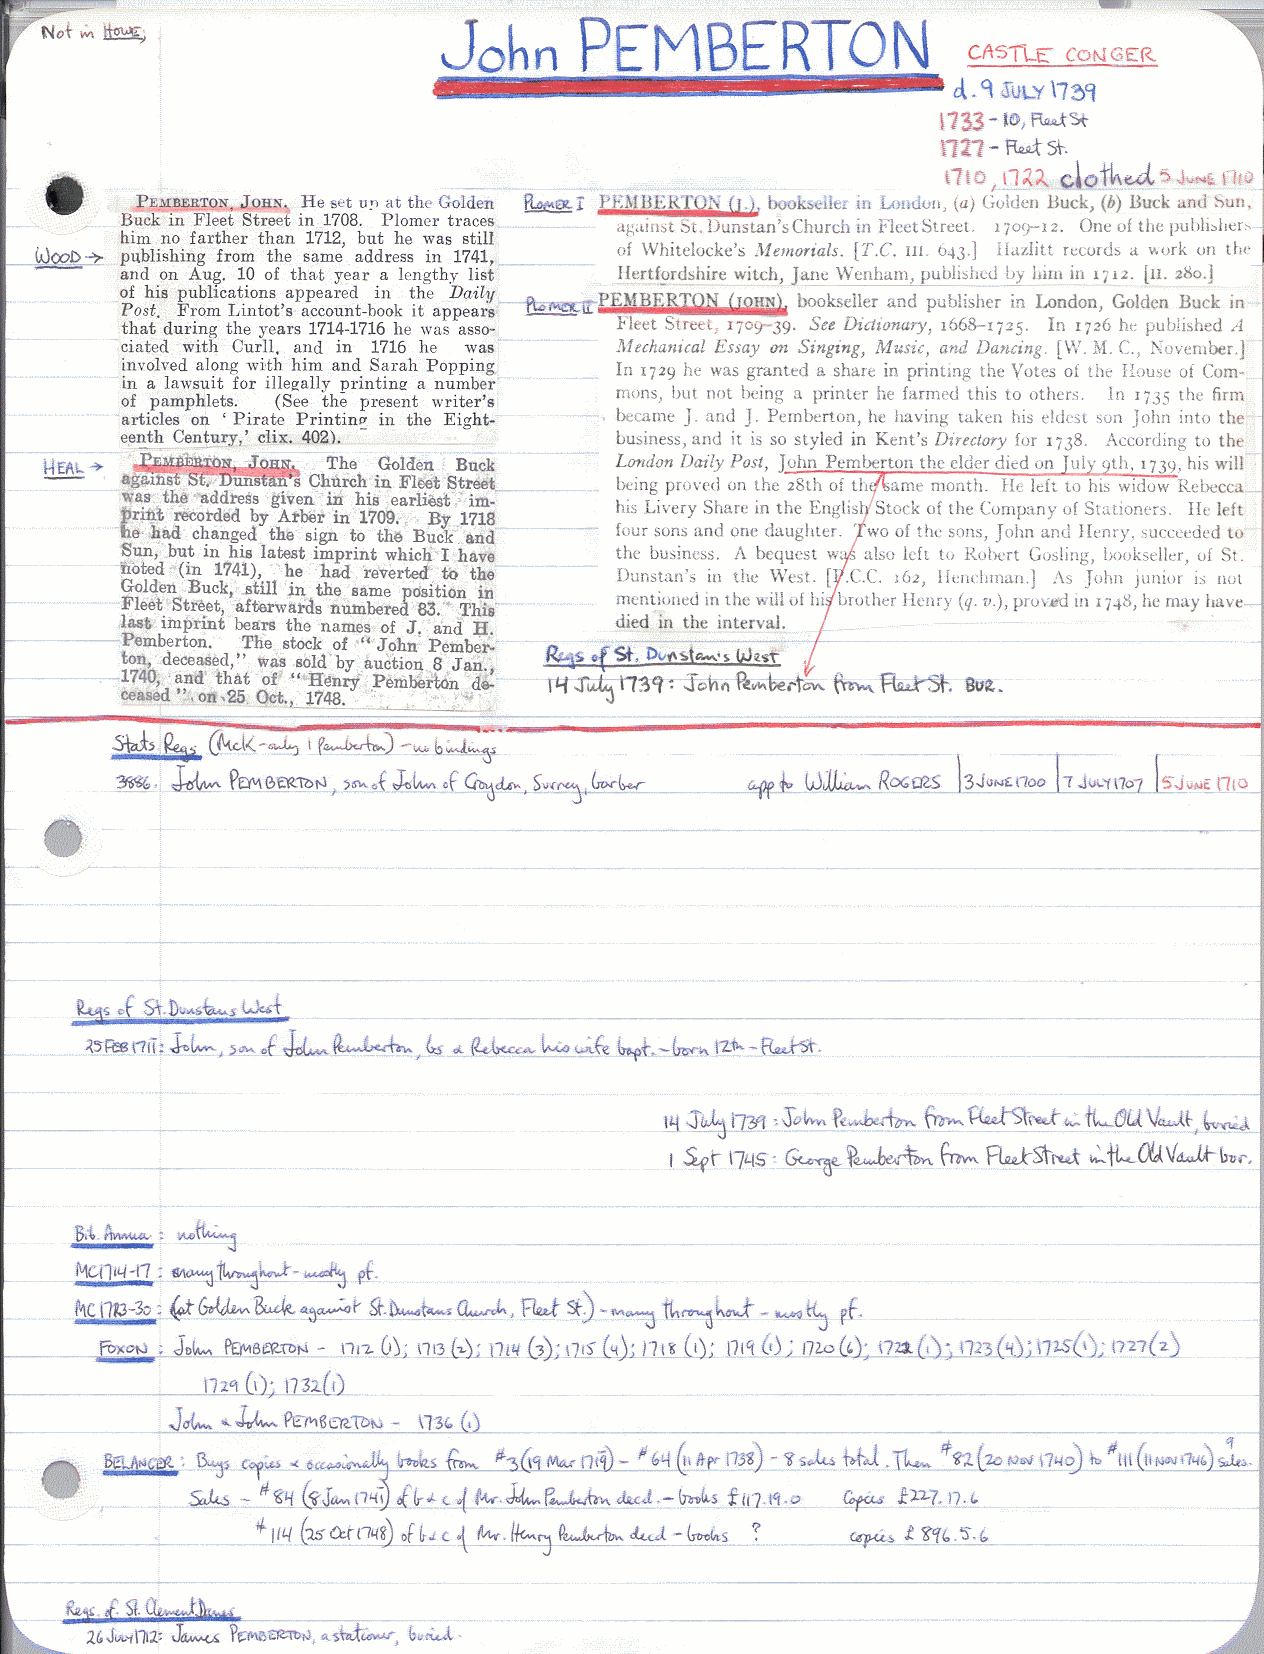 Not in Howe,
John PEMBERTON
CASTLE CONGER
d. 9 JULY 1739
1733 - 10, Fleet St
1727 - Fleet St.
1710, 1722 clothed 5 JUNE 1710
WOOD →
PEMBERTON, JOHN. He set up at the Golden
Buck in Fleet Street in 1708. Plomer traces
him no farther than 1712, but he was still
publishing from the same address in 1741,
and on Aug. 10 of that year a lengthy list
of his publications appeared in the Daily
Post. From Lintot's account-book it appears
that during the years 1714-1716 he was asso-
ciated with Curll, and in 1716 he was
involved along with him and Sarah Popping
in a lawsuit for illegally printing a number
of pamphlets. (See the present writer's
articles on 'Pirate Printing in the Eight-
eenth Century,' clix. 402).
HEAL →
PEMBERTON, JOHN. The Golden Buck
against St. Dunstan's Church in Fleet Street
was the address given in his earliest im-
print recorded by Arber in 1709. By 1718
he had changed the sign to the Buck and
Sun, but in his latest imprint which I have
noted (in 1741), he had reverted to the
Golden Buck, still in the same position in
Fleet Street, afterwards numbered 83. This
last imprint bears the names of J. and H.
Pemberton. The stock of "John Pember-
ton, deceased," was sold by auction 8 Jan.,
1740, and that of "Henry Pemberton de-
ceased" on 25 Oct., 1748.
PLOMER I
PEMBERTON (J.), bookseller in London, (a) Golden Buck, (b) Buck and Sun,
against St. Dunstan's Church in Fleet Street. 1709-12. One of the publishers
of Whitelocke's Memorials. [T.C. III. 643.] Hazlitt records a work on the
Hertfordshire witch, Jane Wenham, published by him in 1712. [II. 280.]
PLOMER II
PEMBERTON (JOHN), bookseller and publisher in London, Golden Buck in
Fleet Street, 1709-39. See Dictionary, 1668-1725. In 1726 he published A
Mechanical Essay on Singing, Music, and Dancing. [W. M. C., November.]
In 1729 he was granted a share in printing the Votes of the House of Com-
mons, but not being a printer he farmed this to others. In 1735 the firm
became J. and J. Pemberton, he having taken his eldest son John into the
business, and it is so styled in Kent's Directory for 1738. According to the
London Daily Post, John Pemberton the elder died on July 9th, 1739, his will
being proved on the 28th of the same month. He left to his widow Rebecca
his Livery Share in the English Stock of the Company of Stationers. He left
four sons and one daughter. Two of the sons, John and Henry, succeeded to
the business. A bequest was also left to Robert Gosling, bookseller, of St.
Dunstan's in the West. [P.C.C. 162, Henchman.] As John junior is not
mentioned in the will of his brother Henry (q. v.), proved in 1748, he may have
died in the interval.
Regs of St. Dunstan's West
14 July 1739: John Pemberton from Fleet St. BUR.
Stats Regs (McK - only 1 Pemberton) - no bindings
3886. John PEMBERTON, son of John of Croydon, Surrey, barber app to William ROGERS | 3 JUNE 1700 | 7 JULY 1707 | 5 JUNE 1710
Regs of St. Dunstans West
25 FEB 1711: John, son of John Pemberton, bs & Rebecca his wife bapt. - born 12th - Fleet St.
14 July 1739: John Pemberton from Fleet Street in the Old Vault, buried
1 Sept 1745: George Pemberton from Fleet Street in the Old Vault bur.
Bib. Annua: nothing
MC 1714-17: many throughout - mostly pf.
MC 1723-30: (at Golden Buck against St. Dunstans Church, Fleet St.) - many throughout - mostly pf.
FOXON: John PEMBERTON - 1712 (1); 1713 (2); 1714 (3); 1715 (4); 1718 (1); 1719 (1); 1720 (6); 1722 (1); 1723 (4); 1725 (1); 1727 (2)
1729 (1); 1732 (1)
John & John PEMBERTON - 1736 (1)
BELANGER: Buys copies & occasionally books from #3 (19 Mar 1719) - #64 (11 Apr 1738) - 8 sales total. Then #82 (20 NOV 1740) to #111 (11 NOV 1746) 9 sales.
Sales - #84 (8 Jan 1741) of b & c of Mr. John Pemberton decd. - books £117.19.0 Copies £227.17.6
#114 (25 Oct 1748) of b & c of Mr. Henry Pemberton decd - books ? copies £896.5.6
Regs. of. St. Clement Danes
26 JULY 1712: James PEMBERTON, a stationer, buried.